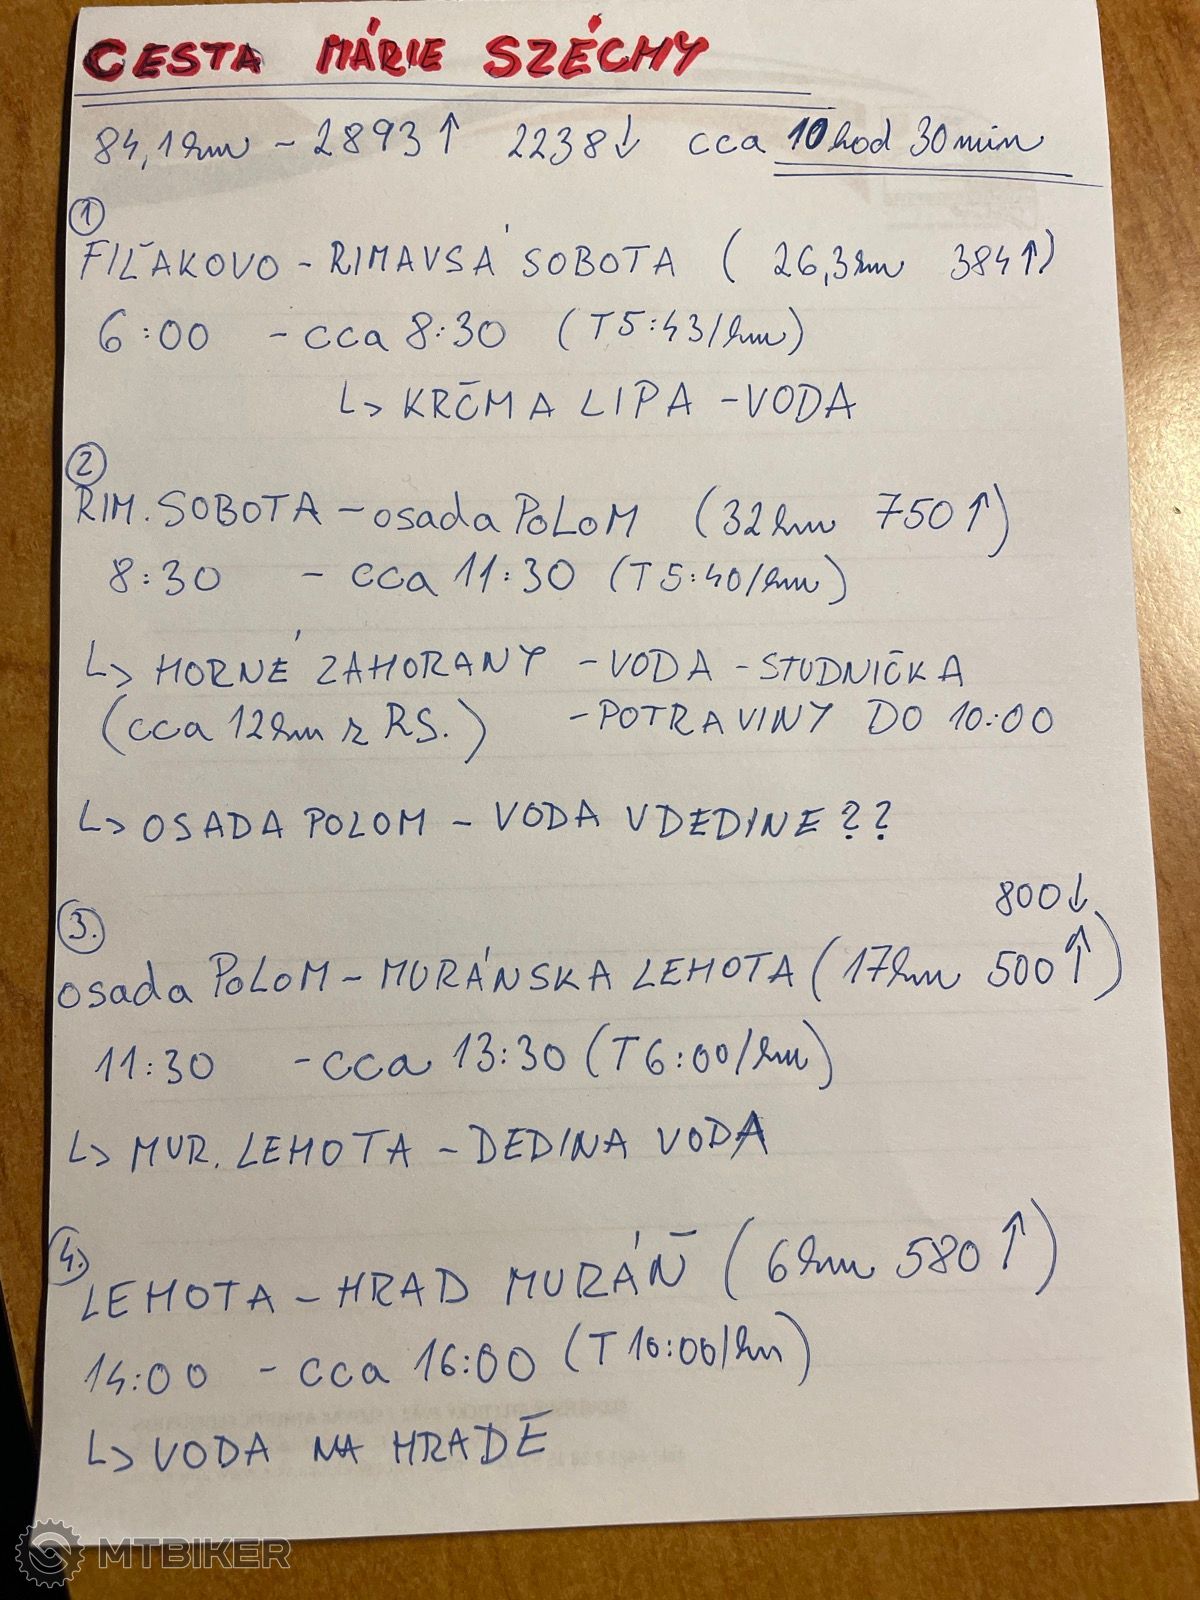 CESTA MÁRIE SZÉCHY
84,1km - 2893↑ 2238↓ cca 10hod 30min
1
FIĽAKOVO - RIMAVSÁ SOBOTA (26,3km 384↑)
6:00 - cca 8:30 (T5:43/km)
↳ KRČMA LIPA - VODA
2
RIM. SOBOTA - osada POLOM (32km 750↑)
8:30 - cca 11:30 (T5:40/km)
↳ HORNÉ ZAHORANY - VODA - STUDNIČKA
(cca 12km z RS.) - POTRAVINY DO 10:00
↳ OSADA POLOM - VODA V DEDINE??
800↓
3.
osada POLOM - MURÁNSKA LEHOTA (17km 500↑)
11:30 - cca 13:30 (T6:00/km)
↳ MUR. LEHOTA - DEDINA VODA
4.
LEHOTA - HRAD MURÁŇ (6km 580↑)
14:00 - cca 16:00 (T10:00/km)
↳ VODA NA HRADE
MTBIKER